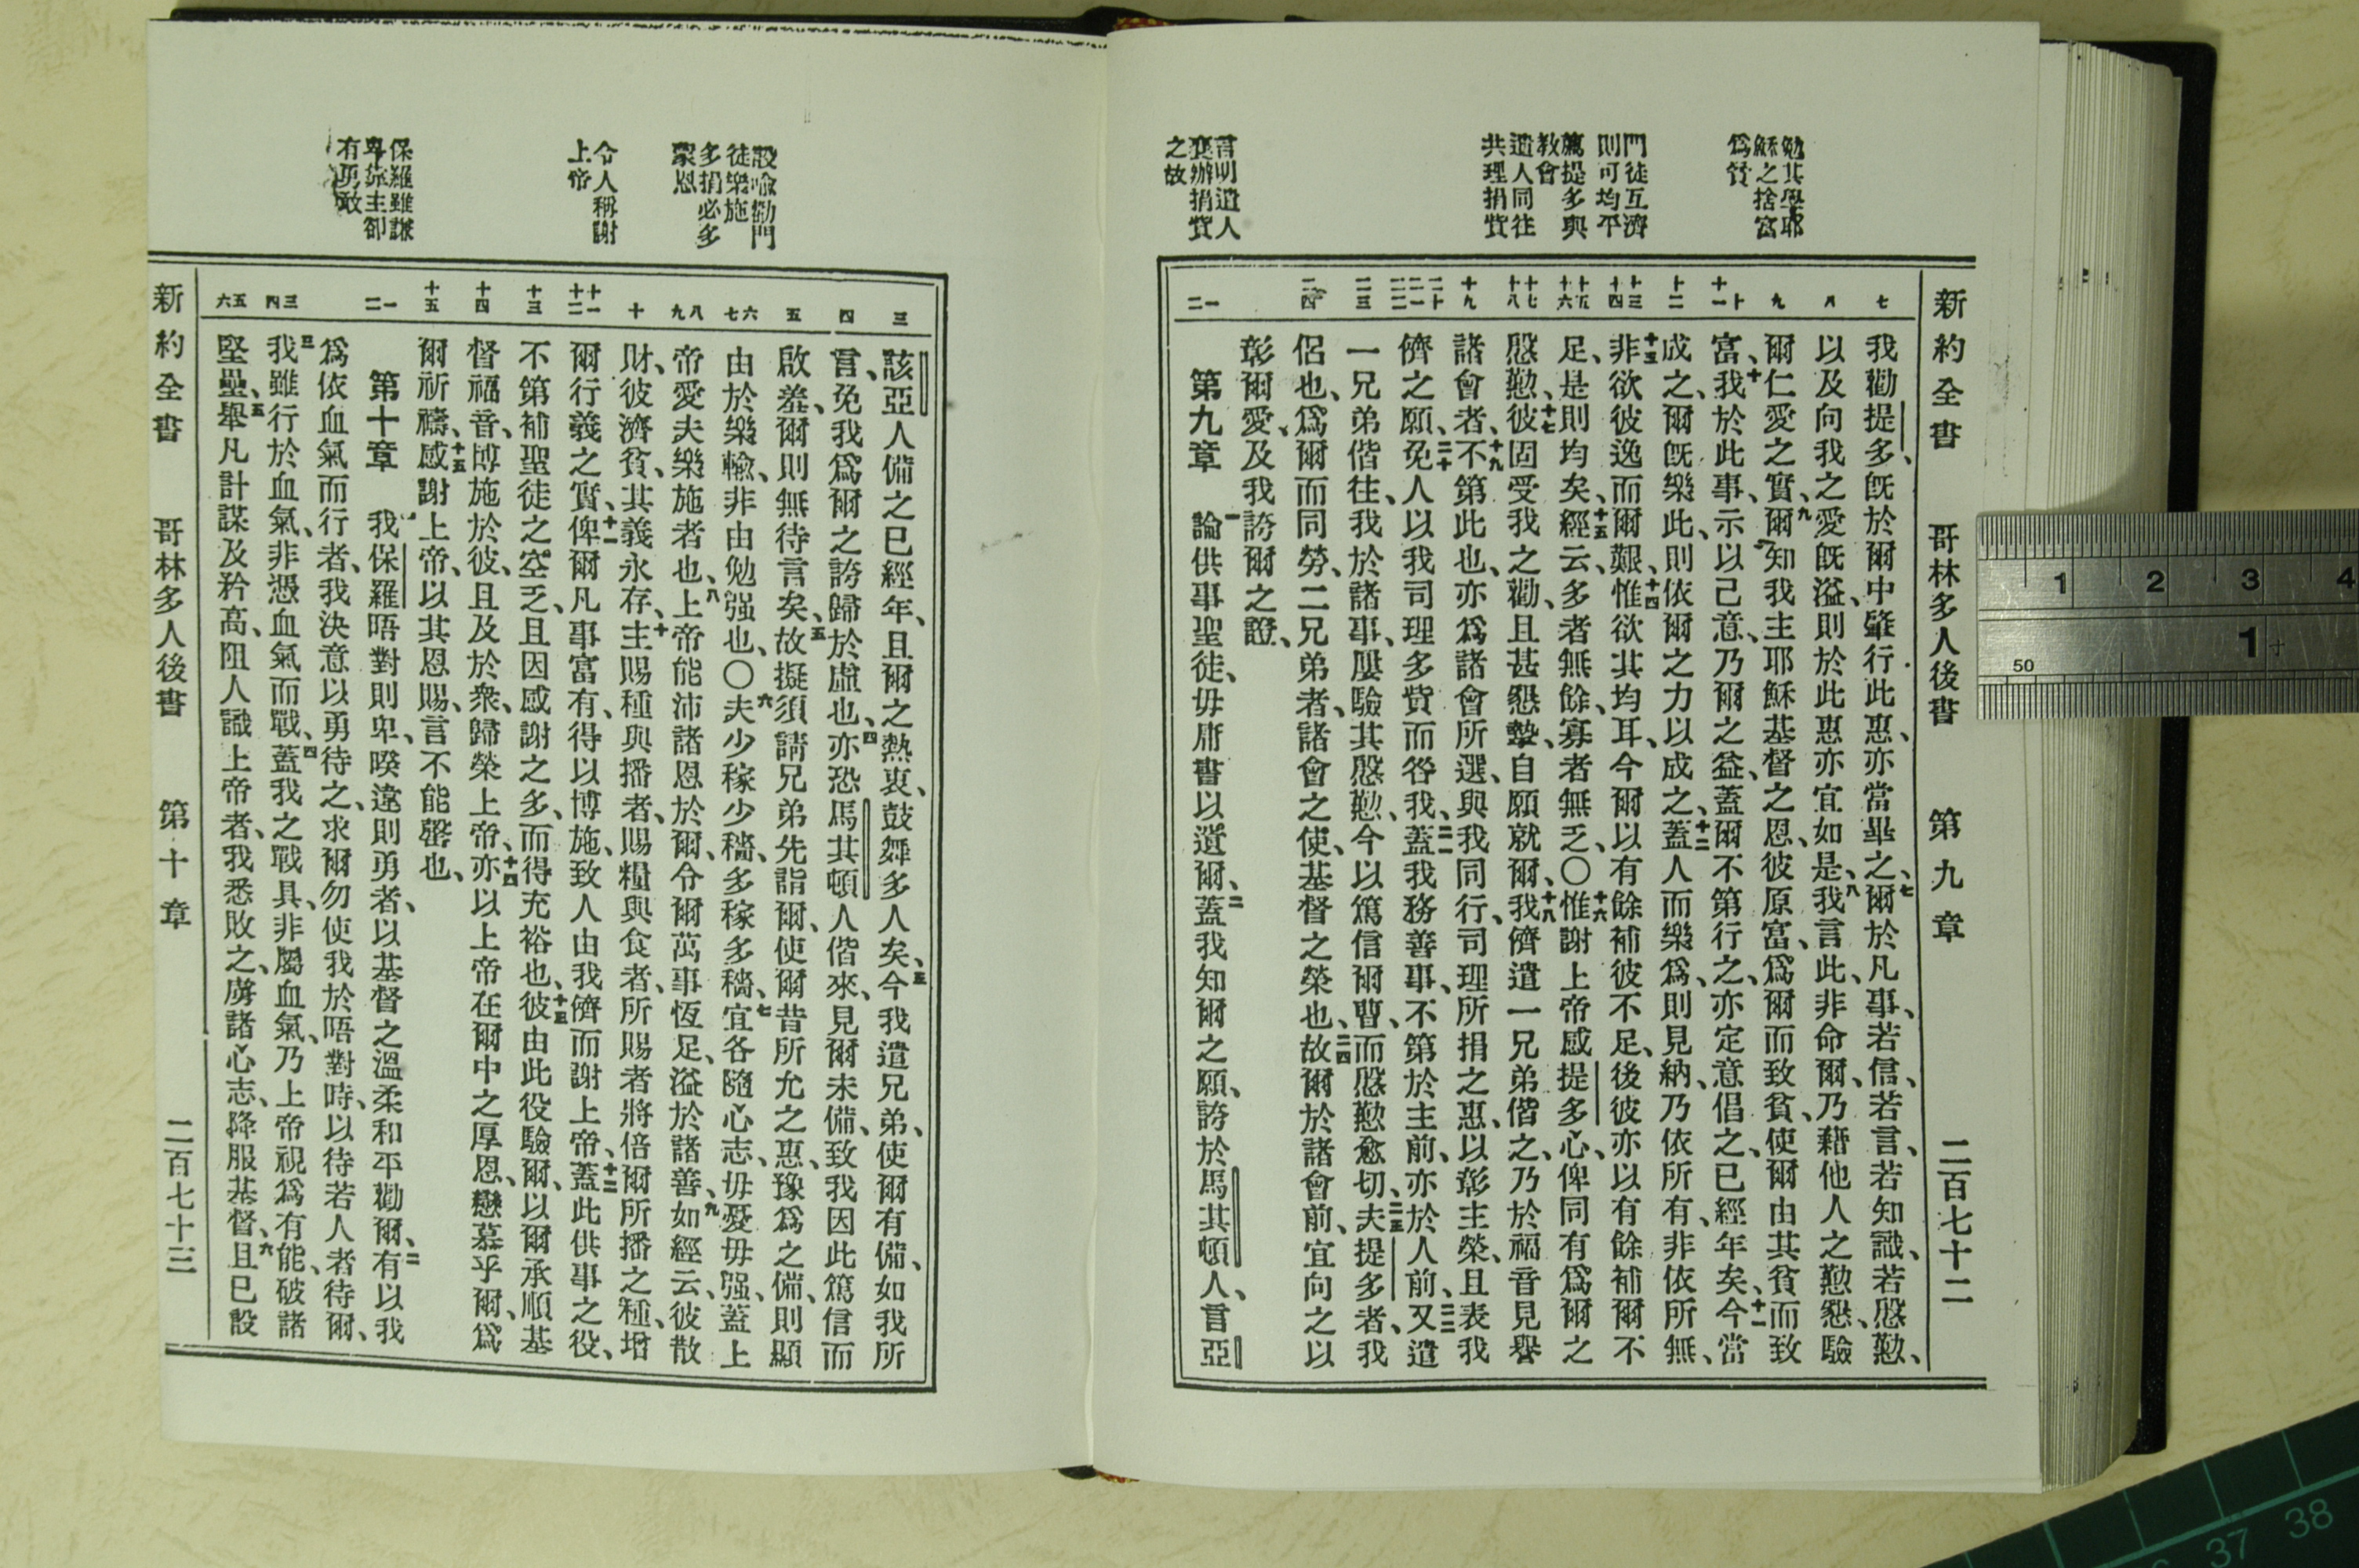 新約全書 哥林多人後書 第九章 二百七十二
勉其學耶
穌之捨富
爲貧
門徒互濟
則可均平
薦提多與
教會
遣人同往
共理捐貲
言明遣人
裒辦捐貲
之故
七
八
九
十 十一
十二
十三 十四
十五 十六
十七 十八
十九
二十 二一 二二
二三
二四
一 二
我勸提多、旣於爾中肇行此惠、亦當畢之、七爾於凡事、若信、若言、若知識、若慇懃、
以及向我之愛旣溢、則於此惠亦宜如是、八我言此、非命爾、乃藉他人之懃懇、驗
爾仁愛之實、九爾知我主耶穌基督之恩、彼原富、爲爾而致貧、使爾由其貧而致
富、十我於此事、示以己意、乃爾之益、蓋爾不第行之、亦定意倡之、已經年矣、十一今當
成之、爾旣樂此、則依爾之力以成之、十二蓋人而樂爲、則見納、乃依所有、非依所無、
十三非欲彼逸而爾艱、十四惟欲其均耳、今爾以有餘補彼不足、後彼亦以有餘補爾不
足、是則均矣、十五經云、多者無餘、寡者無乏、○十六惟謝上帝感提多心、俾同有爲爾之
慇懃、十七彼固受我之勸、且甚懇摯、自願就爾、十八我儕遣一兄弟偕之、乃於福音見譽
諸會者、十九不第此也、亦爲諸會所選、與我同行、司理所捐之惠、以彰主榮、且表我
儕之願、二十免人以我司理多貲而咎我、二一蓋我務善事、不第於主前、亦於人前、二二又遣
一兄弟偕往、我於諸事、屢驗其慇懃、今以篤信爾曹、而慇懃愈切、二三夫提多者、我
侶也、爲爾而同勞、二兄弟者、諸會之使、基督之榮也、二四故爾於諸會前、宜向之以
彰爾愛、及我誇爾之證、
第九章 一論供事聖徒、毋庸書以遺爾、二蓋我知爾之願、誇於馬其頓人、言亞
設喻勸門
徒樂施
多捐必多
蒙恩
令人稱謝
上帝
保羅雖謙
卑靠主卻
有勇敢
三
四
五
六 七
八 九
十
十一 十二
十三
十四
十五
一 二
三 四
五 六
該亞人備之已經年、且爾之熱衷、鼓舞多人矣、三今我遣兄弟、使爾有備、如我所
言、免我爲爾之誇歸於虛也、四亦恐馬其頓人偕來、見爾未備、致我因此篤信而
啟羞、爾則無待言矣、五故擬須請兄弟先詣爾、使爾昔所允之惠、豫爲之備、則顯
由於樂輸、非由勉强也、○六夫少稼少穡、多稼多穡、七宜各隨心志、毋憂毋强、蓋上
帝愛夫樂施者也、八上帝能沛諸恩於爾、令爾萬事恆足、溢於諸善、九如經云、彼散
財、彼濟貧、其義永存、十主賜種與播者、賜糧與食者、所賜者將倍爾所播之種、增
爾行義之實、十一俾爾凡事富有、得以博施、致人由我儕而謝上帝、十二蓋此供事之役、
不第補聖徒之空乏、且因感謝之多、而得充裕也、十三彼由此役驗爾、以爾承順基
督福音、博施於彼、且及於衆、歸榮上帝、十四亦以上帝在爾中之厚恩、戀慕乎爾、爲
爾祈禱、十五感謝上帝、以其恩賜、言不能罄也、
第十章 一我保羅晤對則卑、暌遠則勇者、以基督之溫柔和平勸爾、二有以我
爲依血氣而行者、我決意以勇待之、求爾勿使我於晤對時、以待若人者待爾、
三我雖行於血氣、非憑血氣而戰、四蓋我之戰具、非屬血氣、乃上帝視爲有能、破諸
堅壘、五舉凡計謀及矜高、阻人識上帝者、我悉敗之、虜諸心志、降服基督、六且已設
新約全書 哥林多人後書 第十章 二百七十三
1 2 3 4
50 1
37 38